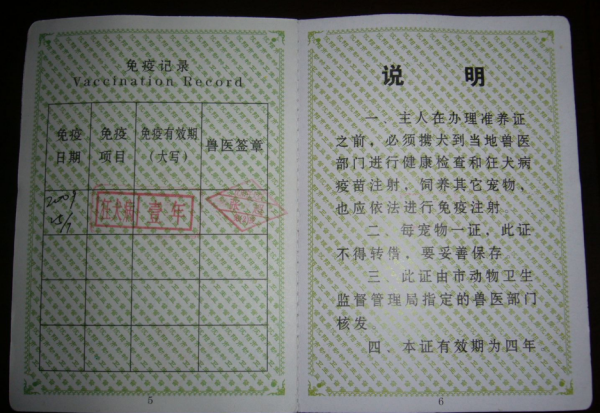 免疫记录
Vaccination Record
免疫日期
免疫项目
免疫有效期(大写)
兽医签章
2009
25/7
狂犬病
壹年
5
说 明
一、主人在办理准养证
之前，必须携犬到当地兽医
部门进行健康检查和狂犬病
疫苗注射，饲养其它宠物，
也应依法进行免疫注射
二、每宠物一证，此证
不得转借，要妥善保存
三、此证由市动物卫生
监督管理局指定的兽医部门
核发
四、本证有效期为四年
6